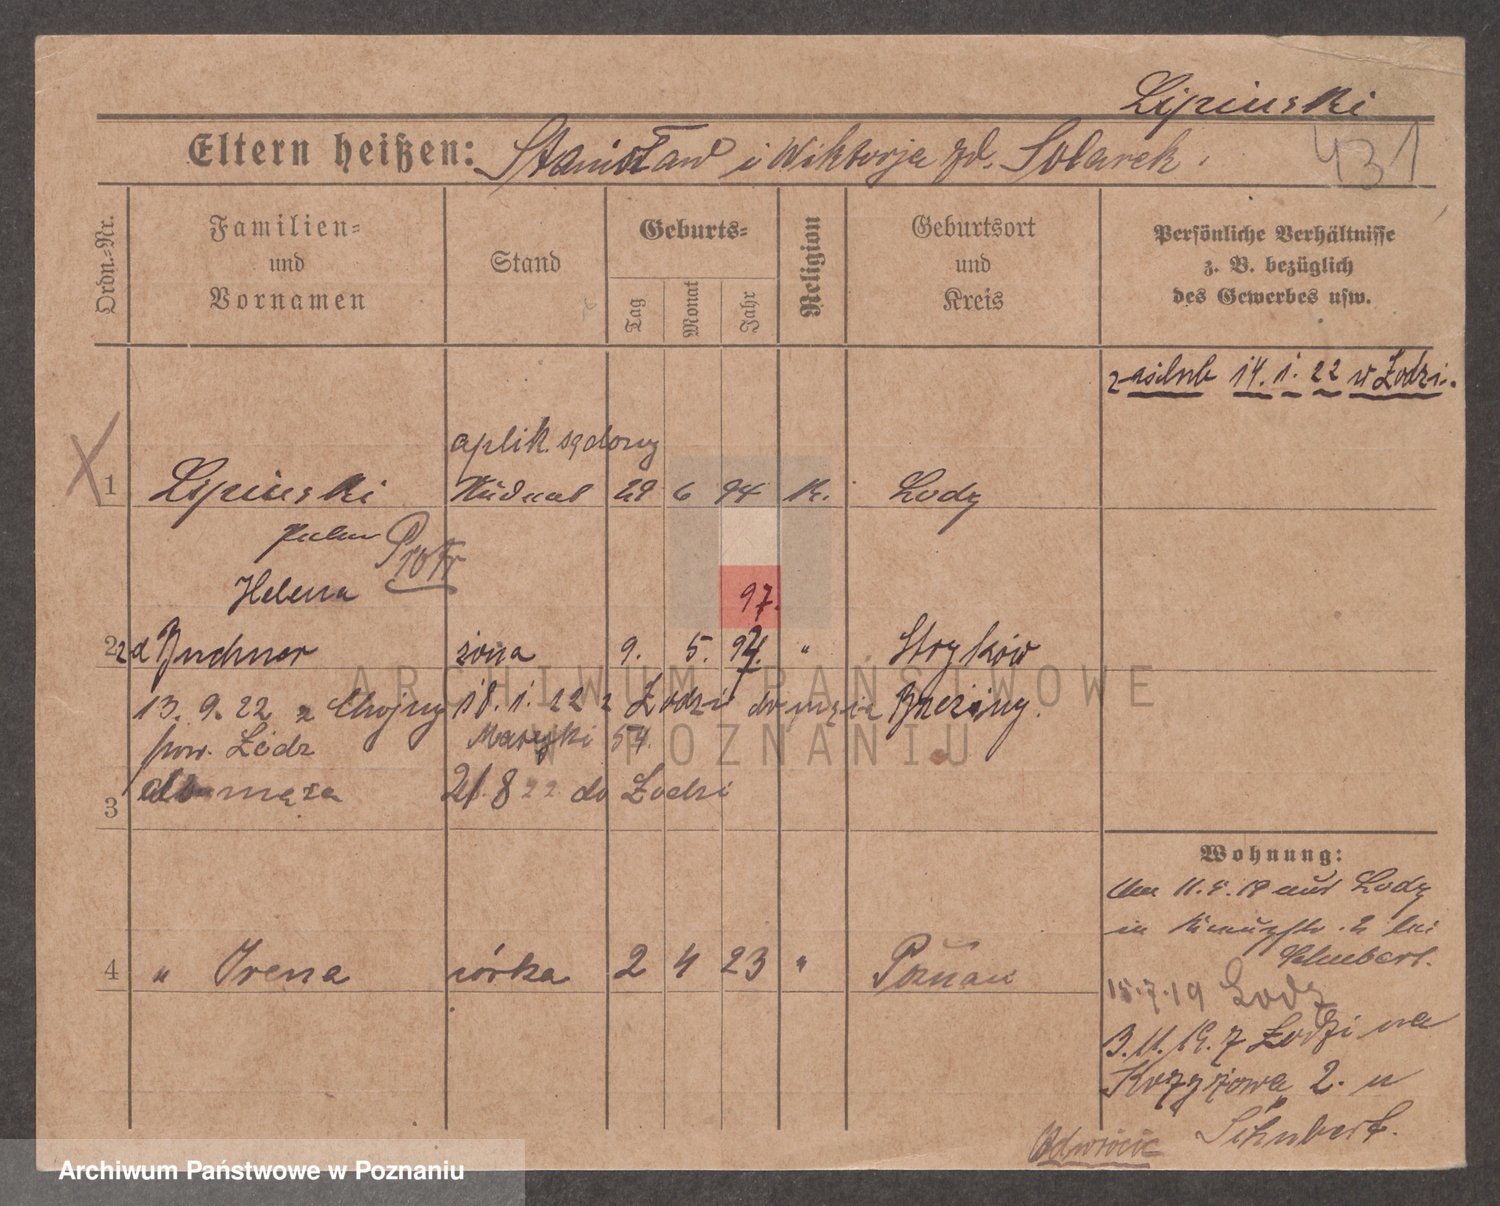 Lipinski
431
Eltern heißen: Stanisław i Wiktorja zd. Solarek.
Ordn.-Nr.
Familien- und Vornamen
Stand
Geburts-
Tag
Monat
Jahr
Religion
Geburtsort und Kreis
Persönliche Verhältnisse z. B. bezüglich des Gewerbes usw.
zaślub 14. 1. 22 w Łodzi.
aplik. sądowy
1 Lipinski 29 6 94 K. Lodz
Piotr
Helena
97.
2 zd Buchner żona 9. 5. 94. " Stryków
13. 9. 22 z Chojny 18. 1. 22 z Łodzi do męża Brzeziny.
pow. Łódz Maryski 54.
3 do męża 21. 8 22 do Łodzi
Wohnung:
11.5.18 aus Lodz
in 2 bei
Schubert.
4 " Irena córka 2 4 23 " Poznań
15.7.19 Lodz
3.11.19. z Łodzi na
Krzyżowa 2. u
Schubert.
Odwrócić
ARCHIWUM PAŃSTWOWE
W POZNANIU
Archiwum Państwowe w Poznaniu